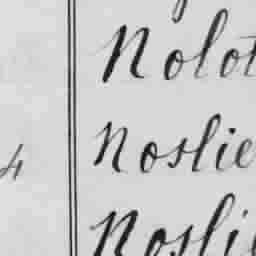 Nolot
4 Noslie
Nosli